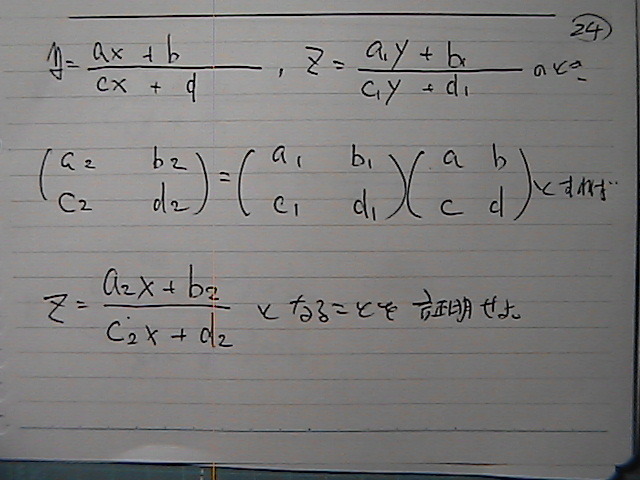 24
y = (ax + b)/(cx + d), z = (a₁y + b₁)/(c₁y + d₁) のとき
(a₂ b₂; c₂ d₂) = (a₁ b₁; c₁ d₁)(a b; c d) とすれば
z = (a₂x + b₂)/(c₂x + d₂) となることを証明せよ。